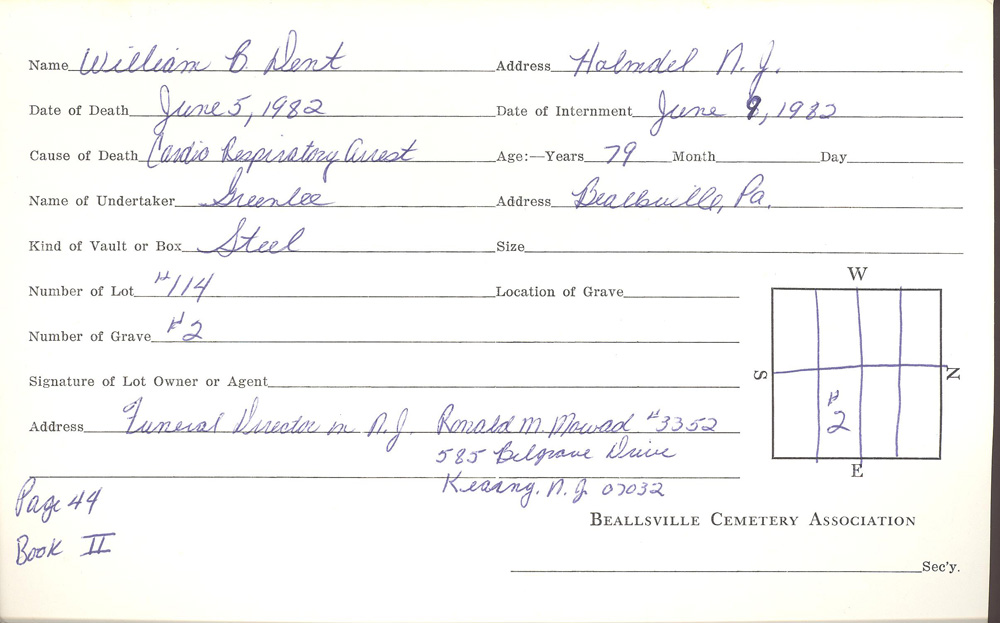 Name William B Dent Address Holmdel N.J.
Date of Death June 5, 1982 Date of Internment June 9, 1982
Cause of Death Cardio Respiratory Arrest Age:—Years 79 Month Day
Name of Undertaker Greenlee Address Beallsville, Pa.
Kind of Vault or Box Steel Size
Number of Lot #114 Location of Grave
W
Number of Grave #2
S N
Signature of Lot Owner or Agent
#2
Address Funeral Director in N.J. Ronald M. Mowad #3352
585 Belgrave Drive
E
Kearny, N.J. 07032
Page 44
Beallsville Cemetery Association
Book II
Sec'y.